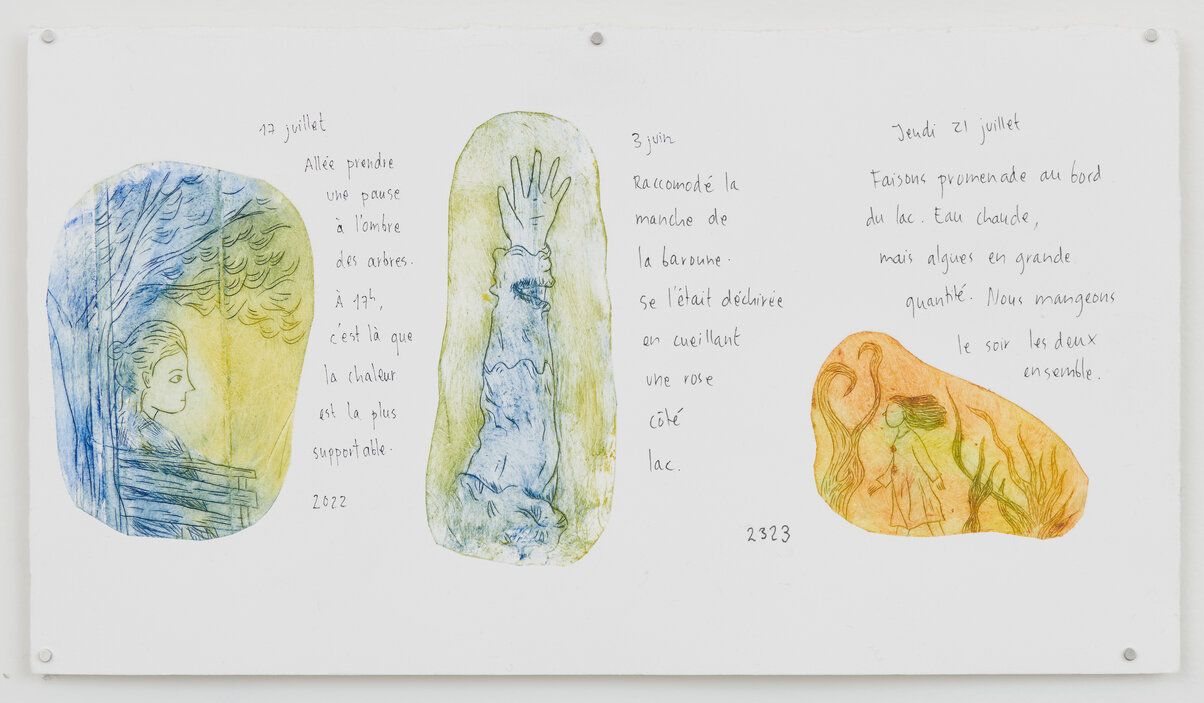 17 juillet
Allée prendre
une pause
à l'ombre
des arbres.
À 17h,
c'est là que
la chaleur
est la plus
supportable.
2022
3 juin
Raccomodé la
manche de
la baronne.
Se l'était déchirée
en cueillant
une rose
côté
lac.
2323
Jeudi 21 juillet
Faisons promenade au bord
du lac. Eau chaude,
mais algues en grande
quantité. Nous mangeons
le soir les deux
ensemble.